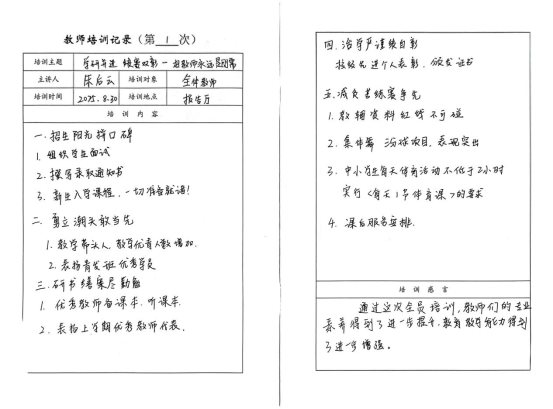 教师培训记录（第 1 次）
培训主题 学研奋进 续暑 教师永远是
主讲人 朱启云 培训对象 全体教师
培训时间 2025.8.30 培训地点 报告厅
培 训 内 容
一. 招生阳光择口碑
1. 组织学生面试
2. 撰写录取通知书
3. 新生入学课程，一切准备就绪！
二. 勇立潮头敢当先
1. 教学带头人，教学优青人数增加.
2. 表扬青发班优秀学员
三. 研书 集尽勤勉
1. 优秀教师备课本、听课本
2. 表扬上学期优秀教师代表.
四. 治学严谨续自彰
按级先进个人表彰，颁发证书
五. 减负苦练赛争先
1. 教辅资料红线不可碰
2. 集体舞 项目，表现突出
3. 中小学生每天体育活动不低于2小时
实行《每天1节体育课》的要求
4. 课后服务安排.
培 训 感 言
通过这次全员培训，教师们的专业
素养得到了进一步提升，教育教学能力得到
了进一步增强。